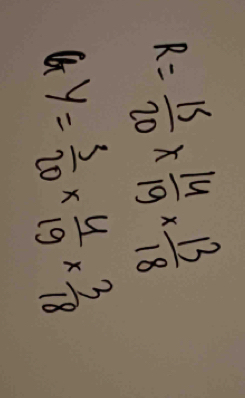 R = 15/20 × 14/19 × 13/18
Y = 5/20 × 4/19 × 3/18